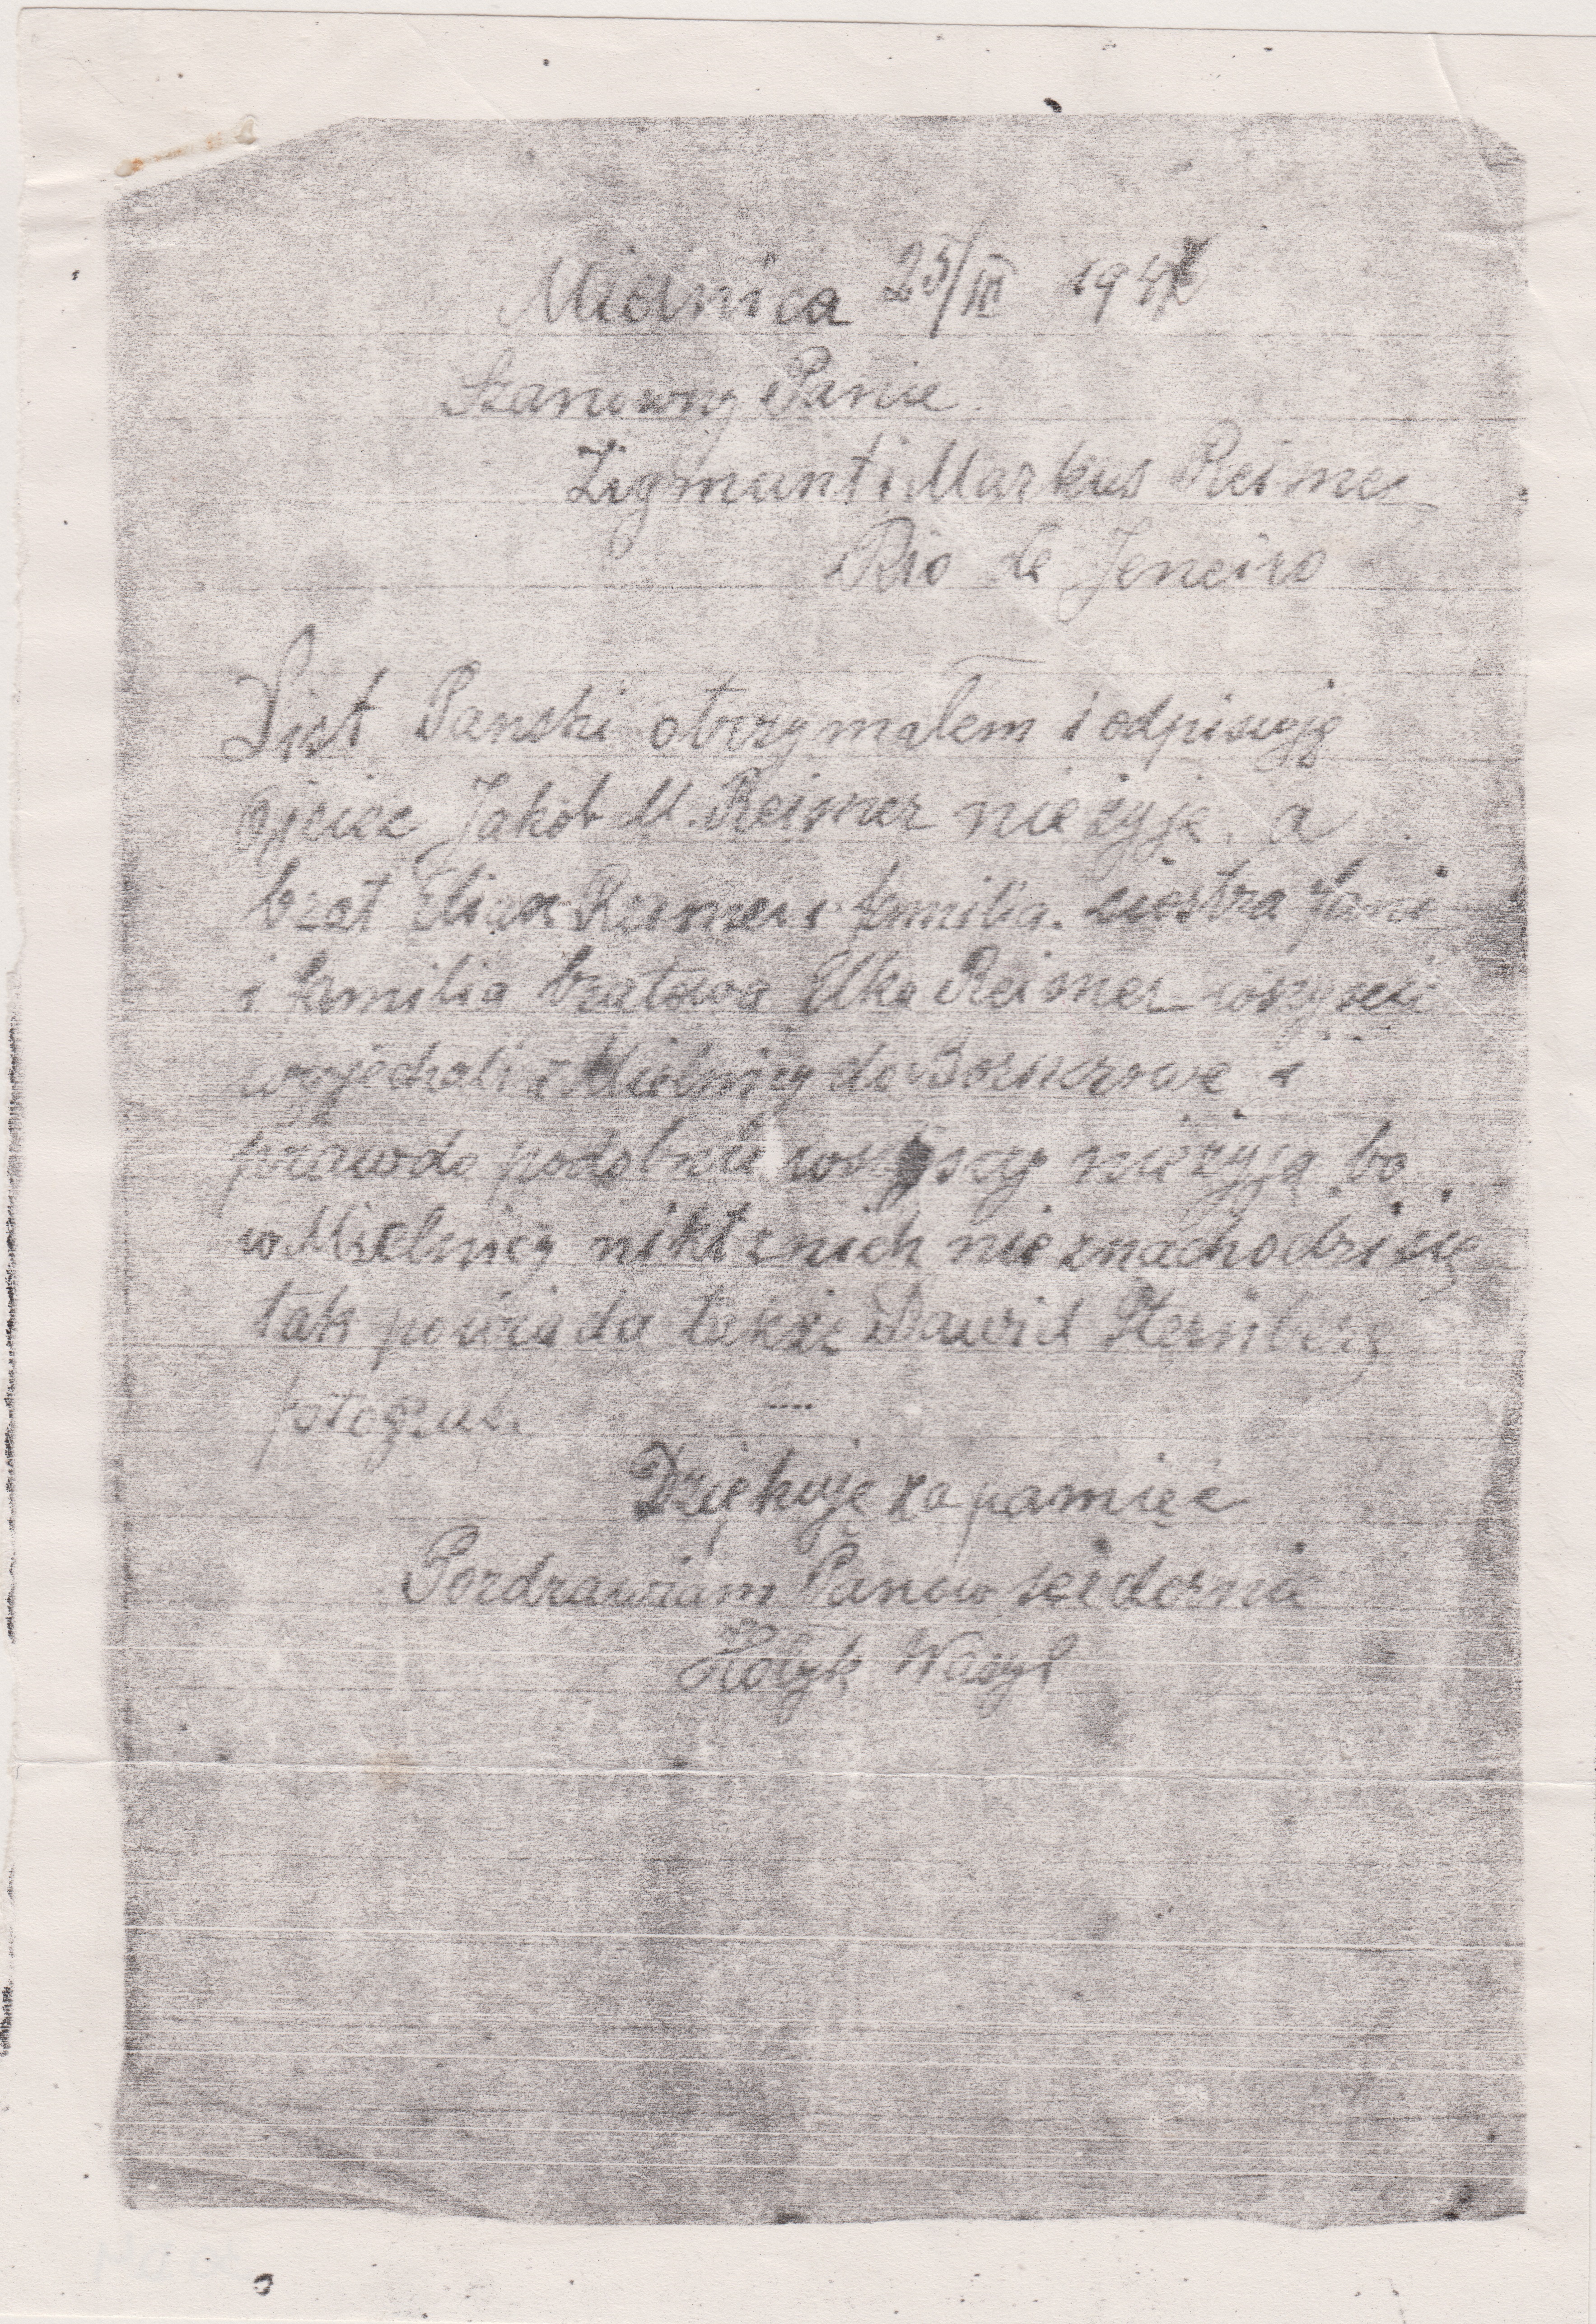 Mielnica 25/III 194
Szanowny Panie
Zigmant i Markus Reimer
Rio de Jeneiro
List Panski otrzymałem i odpisuję
ojciec Jakób M. Reimer nie żyje, a
brat Eliax Reimer i familia. siostra
i familia bratowa Elka Reimer wszyscy
wyjechali z Mielnicy do i
prawdo podobnie wszyscy nie żyją bo
w Mielnicy nikt z nich nie znachodzi się
tak powiada także Dawid Sternberg
fotograf.
Dziękuję za pamięć
Pozdrawiam Panów serdecznie
Wasyl